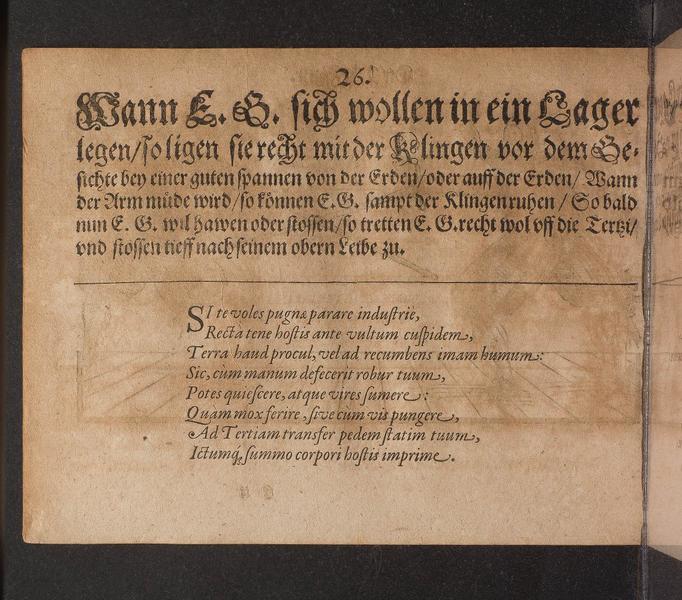 26.
Wann E. G. sich wollen in ein Lager
legen/so ligen sie recht mit der Klingen vor dem Ge-
sichte bey einer guten spannen von der Erden/oder auff der Erden/ Wann
der Arm müde wird/so können E.G. sampt der Klingen ruhen/ So bald
nun E. G. wil hawen oder stossen/so tretten E. G. recht wol vff die Tertzi/
vnd stossen tieff nach seinem obern Leibe zu.
SI te voles pugnæ parare industriè,
Recta tene hostis ante vultum cuspidem,
Terra haud procul, vel ad recumbens imam humum:
Sic, cum manum defecerit robur tuum,
Potes quiescere, atque vires sumere:
Quam mox ferire, sive cum vis pungere,
Ad Tertiam transfer pedem statim tuum,
Ictumq; summo corpori hostis imprime.